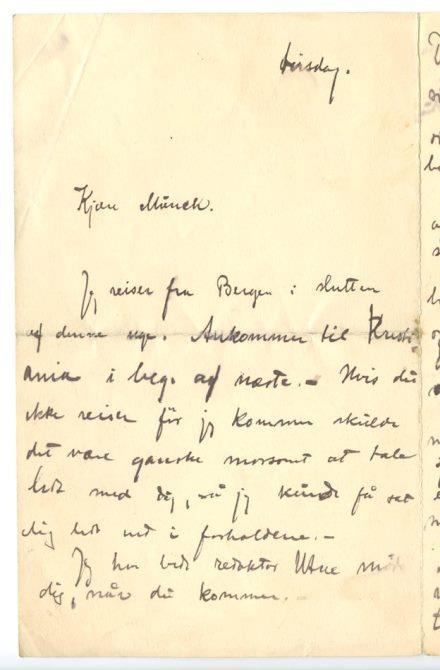 tirsdag.
Kjære Munch.
Jeg reiser fra Bergen i slutten
af denne uge. Ankommer til Kristi-
ania i beg. af næste. – Hvis du
ikke reiser før jeg kommer skulde
det være ganske morsomt at tale
lidt med dig, så jeg kunde få sat
dig lidt ind i forholdene. –
Jeg har bedt redaktør
dig, når du kommer. –